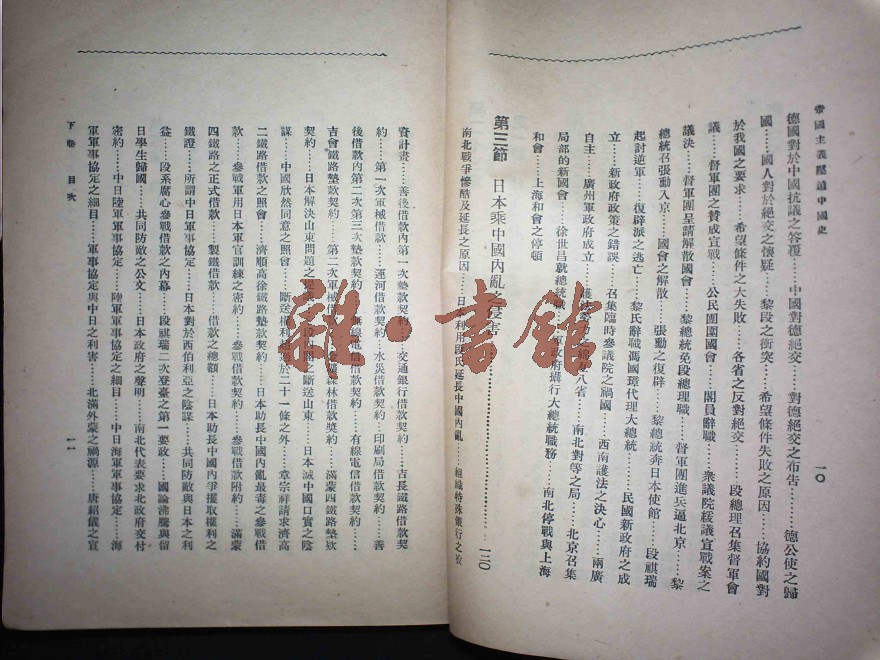 帝國主義壓迫中國史
一〇
德國對於中國抗議之答覆……中國對德絕交……對德絕交之布告……德公使之歸
國……國人對於絕交之懷疑……黎段之衝突……希望條件失敗之原因……協約國對
於我國之要求……希望條件之大失敗……各省之反對絕交……段總理召集督軍會
議……督軍團之贊成宣戰……公民團圍國會……閣員辭職……衆議院緩議宣戰案之
議決……督軍團呈請解散國會……黎總統免段總理職……督軍團進兵逼北京……黎
總統召張勳入京……國會之解散……張勳之復辟……黎總統奔日本使館……段祺瑞
起討逆軍……復辟派之逃亡……黎氏辭職馮國璋代理大總統……民國新政府之成
立……新政府政策之錯誤……召集臨時參議院之禍國……西南護法之決心……兩廣
自主……廣州軍政府成立……八省……南北對等之局……北京召集
局部的新國會……徐世昌就總統職……軍政府攝行大總統職務……南北停戰與上海
和會……上海和會之停頓
第三節 日本乘中國內亂之侵害……一二〇
南北戰爭慘酷及延長之原因……日本利用段氏延長中國內亂……組織特殊銀行之投
資計畫……善後借款內第一次墊款契約……交通銀行借款契約……吉長鐵路借款契
約……第一次軍械借款……運河借款契約……水災借款契約……印刷局借款契約……善
後借款內第二次第三次墊款契約……無線電信借款契約……有線電信借款契約……
吉會鐵路墊款契約……第二次軍械借款……森林借款契約……滿蒙四鐵路墊款
契約……日本解決山東問題之……段內閣之斷送山東……日本滅中國口實之陰
謀……中國欣然同意之照會……斷送權利超過於二十一條之外……章宗祥請求濟高
二鐵路借款之照會……濟順高徐鐵路墊款契約……日本助長中國內亂最毒之參戰借
款……參戰軍用日本軍官訓練之密約……參戰借款契約……參戰借款附約……滿蒙
四鐵路之正式借款……製鐵借款……借款之總額……日本助長中國內爭攫取權利之
鐵證……所謂中日軍事協定……日本對於西伯利亞之陰謀……共同防敵與日本之利
益……段系腐心參戰借款之內幕……段祺瑞二次登臺之第一要政……國論沸騰與留
日學生歸國……共同防敵之公文……日本政府之聲明……南北代表要求北政府交付
密約……中日陸軍軍事協定……陸軍軍事協定之細目……中日海軍軍事協定……海
軍軍事協定之細目……軍事協定與中日之利害……北滿外蒙之禍源……唐紹儀之宣
下卷 目次
一一
雜·書館